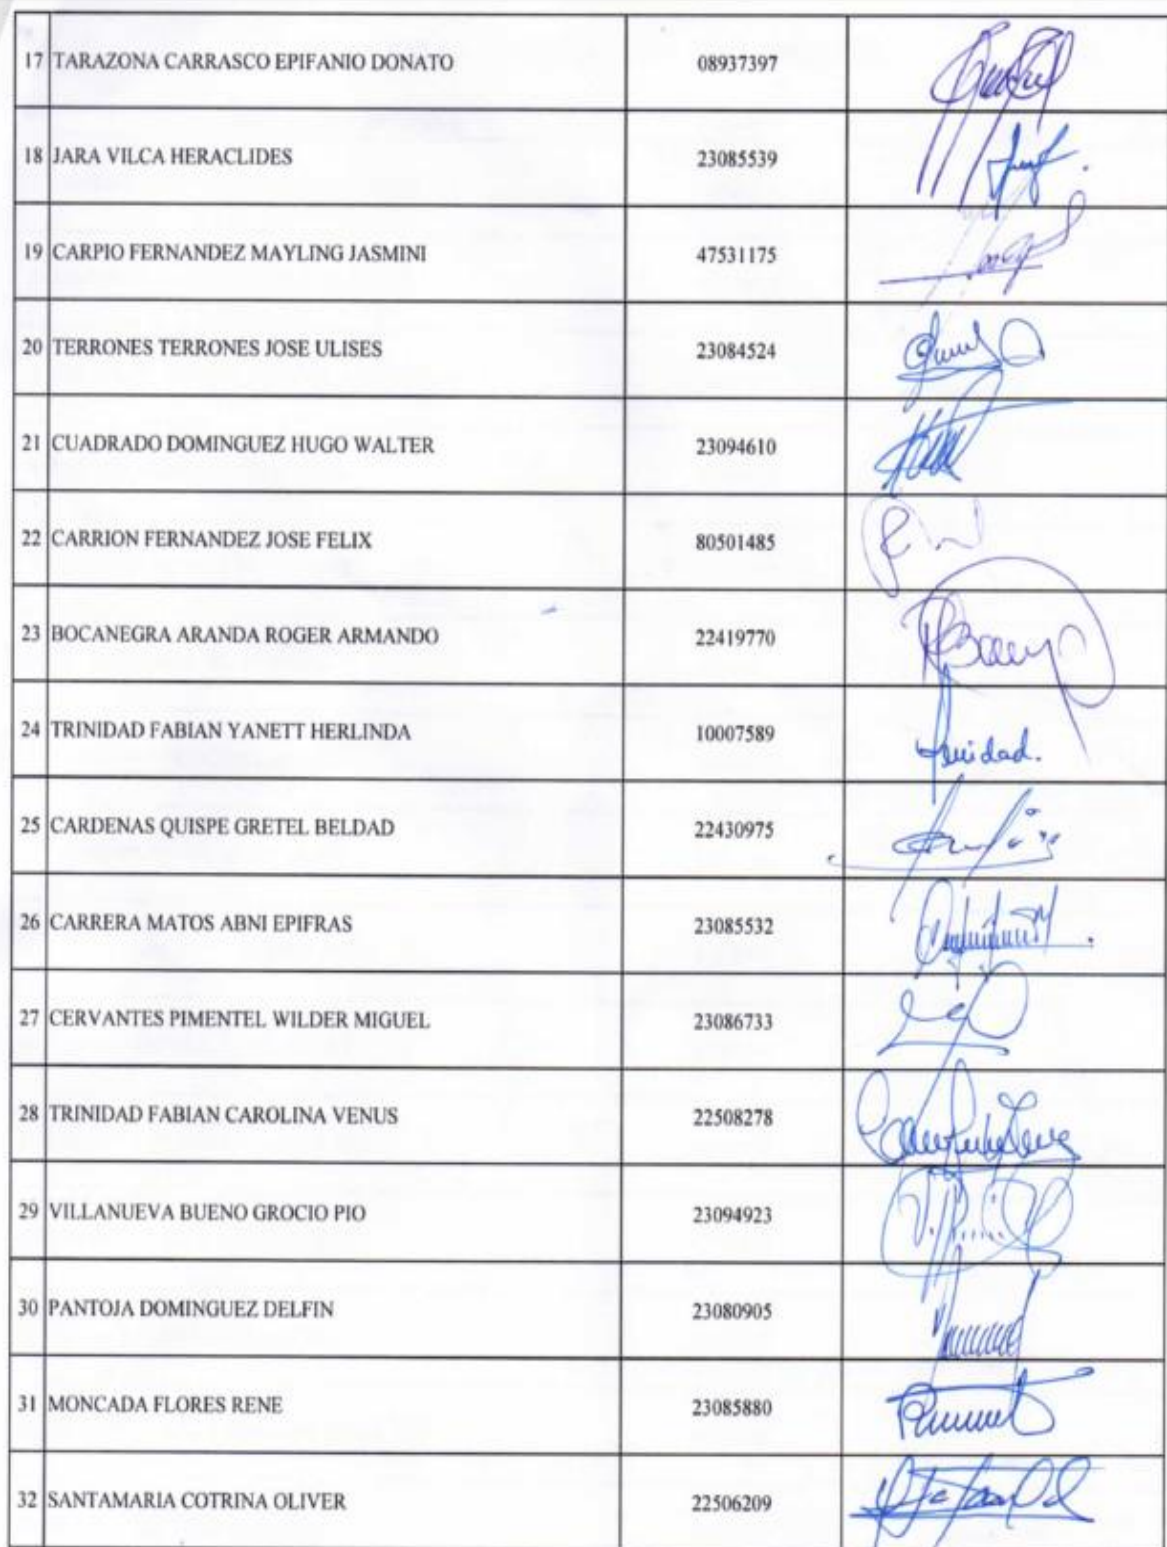 17 TARAZONA CARRASCO EPIFANIO DONATO 08937397
18 JARA VILCA HERACLIDES 23085539
19 CARPIO FERNANDEZ MAYLING JASMINI 47531175
20 TERRONES TERRONES JOSE ULISES 23084524
21 CUADRADO DOMINGUEZ HUGO WALTER 23094610
22 CARRION FERNANDEZ JOSE FELIX 80501485
23 BOCANEGRA ARANDA ROGER ARMANDO 22419770
24 TRINIDAD FABIAN YANETT HERLINDA 10007589
25 CARDENAS QUISPE GRETEL BELDAD 22430975
26 CARRERA MATOS ABNI EPIFRAS 23085532
27 CERVANTES PIMENTEL WILDER MIGUEL 23086733
28 TRINIDAD FABIAN CAROLINA VENUS 22508278
29 VILLANUEVA BUENO GROCIO PIO 23094923
30 PANTOJA DOMINGUEZ DELFIN 23080905
31 MONCADA FLORES RENE 23085880
32 SANTAMARIA COTRINA OLIVER 22506209